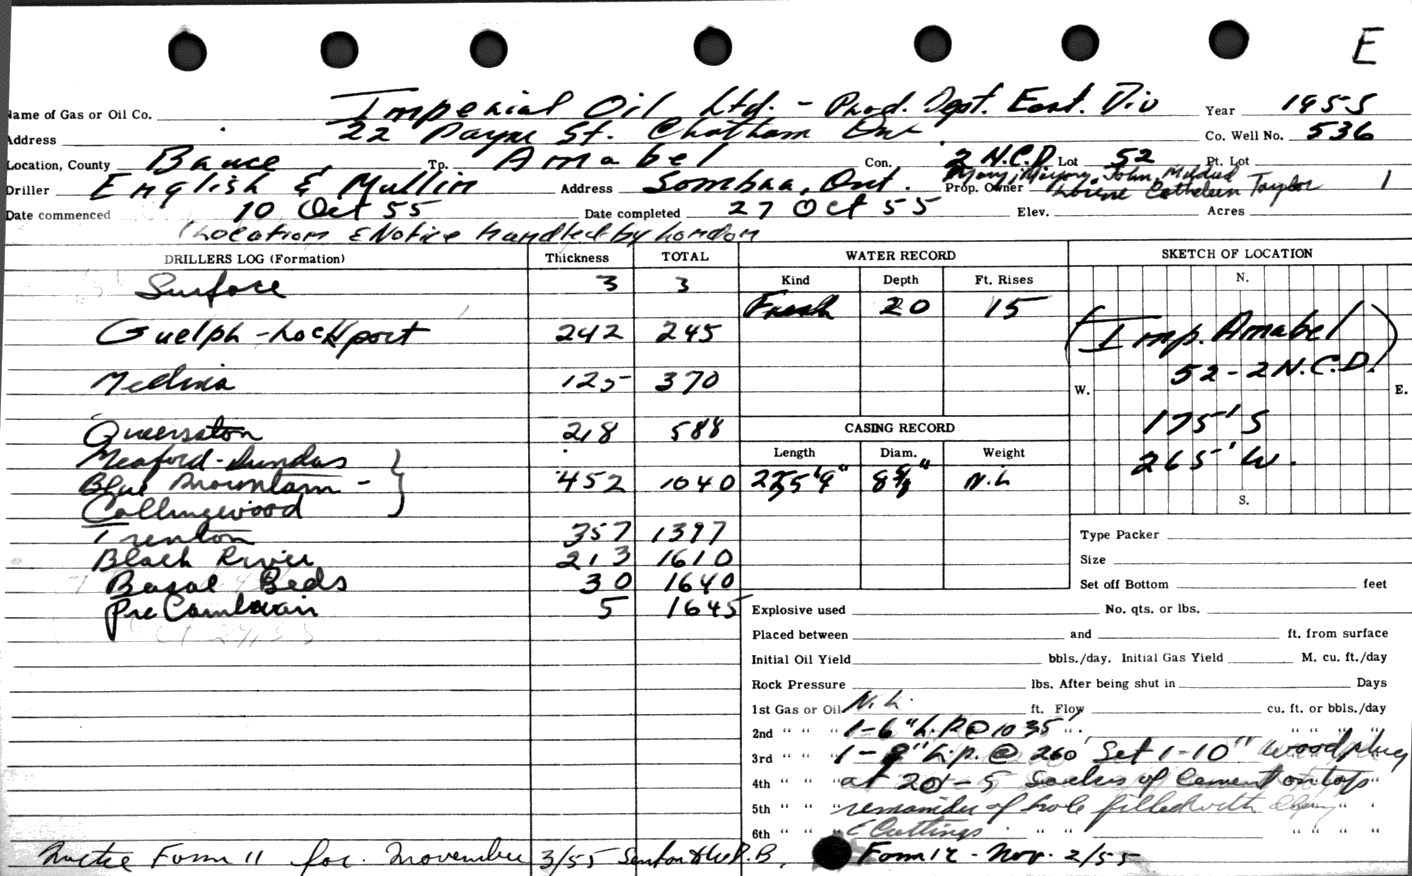 E
Name of Gas or Oil Co. Imperial Oil Ltd. - Prod. Dept. East. Div Year 1955
Address 22 Payne St. Chatham Ont Co. Well No. 536
Location, County Bruce, Tp. Amabel Con. 2 N.C.D. Lot 52 Pt. Lot
Driller English & Mullin Address Sombra, Ont. Prop. Owner Mary, Marjory, John, Mildred Lorene Cathleen Taylor 1
Date commenced 10 Oct 55 Date completed 27 Oct 55 Elev. Acres
(Location & Notice handled by London
DRILLERS LOG (Formation) Thickness TOTAL WATER RECORD SKETCH OF LOCATION
Kind Depth Ft. Rises N.
Surface 3 3 Fresh 20 15
Guelph-Lockport 242 245 (Imp. Amabel)
52-2 N.C.D.
Medina 125 370 W. E.
175' S
Queenston 218 588 CASING RECORD
Meaford-Dundas Length Diam. Weight 265' W.
Blue Mountain - 452 1040 N.L
Collingwood S.
Trenton 357 1397 Type Packer
Black River 213 1610 Size
Basal Beds 30 1640 Set off Bottom feet
Pre Cambrain 5 1645 Explosive used No. qts. or lbs.
Placed between and ft. from surface
Initial Oil Yield bbls./day. Initial Gas Yield M. cu. ft./day
Rock Pressure lbs. After being shut in Days
1st Gas or Oil N.L. ft. Flow cu. ft. or bbls./day
2nd " " " 1-6" L.P. @ 1035' " " " "
3rd " " " 1-8" L.P. @ 260' Set 1-10" wood plug
4th " " " at 20' - 5 Sacks of Cement on top "
5th " " " remainder of hole filled with "
6th " " " & Cuttings " " " " " "
Form 11 for November 3/55 Form 12 - Nov. 2/55